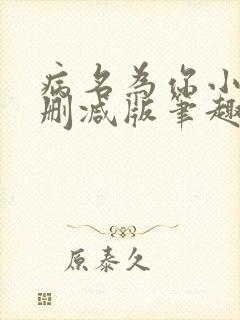 病名为你小
删减版笔趣
原泰久